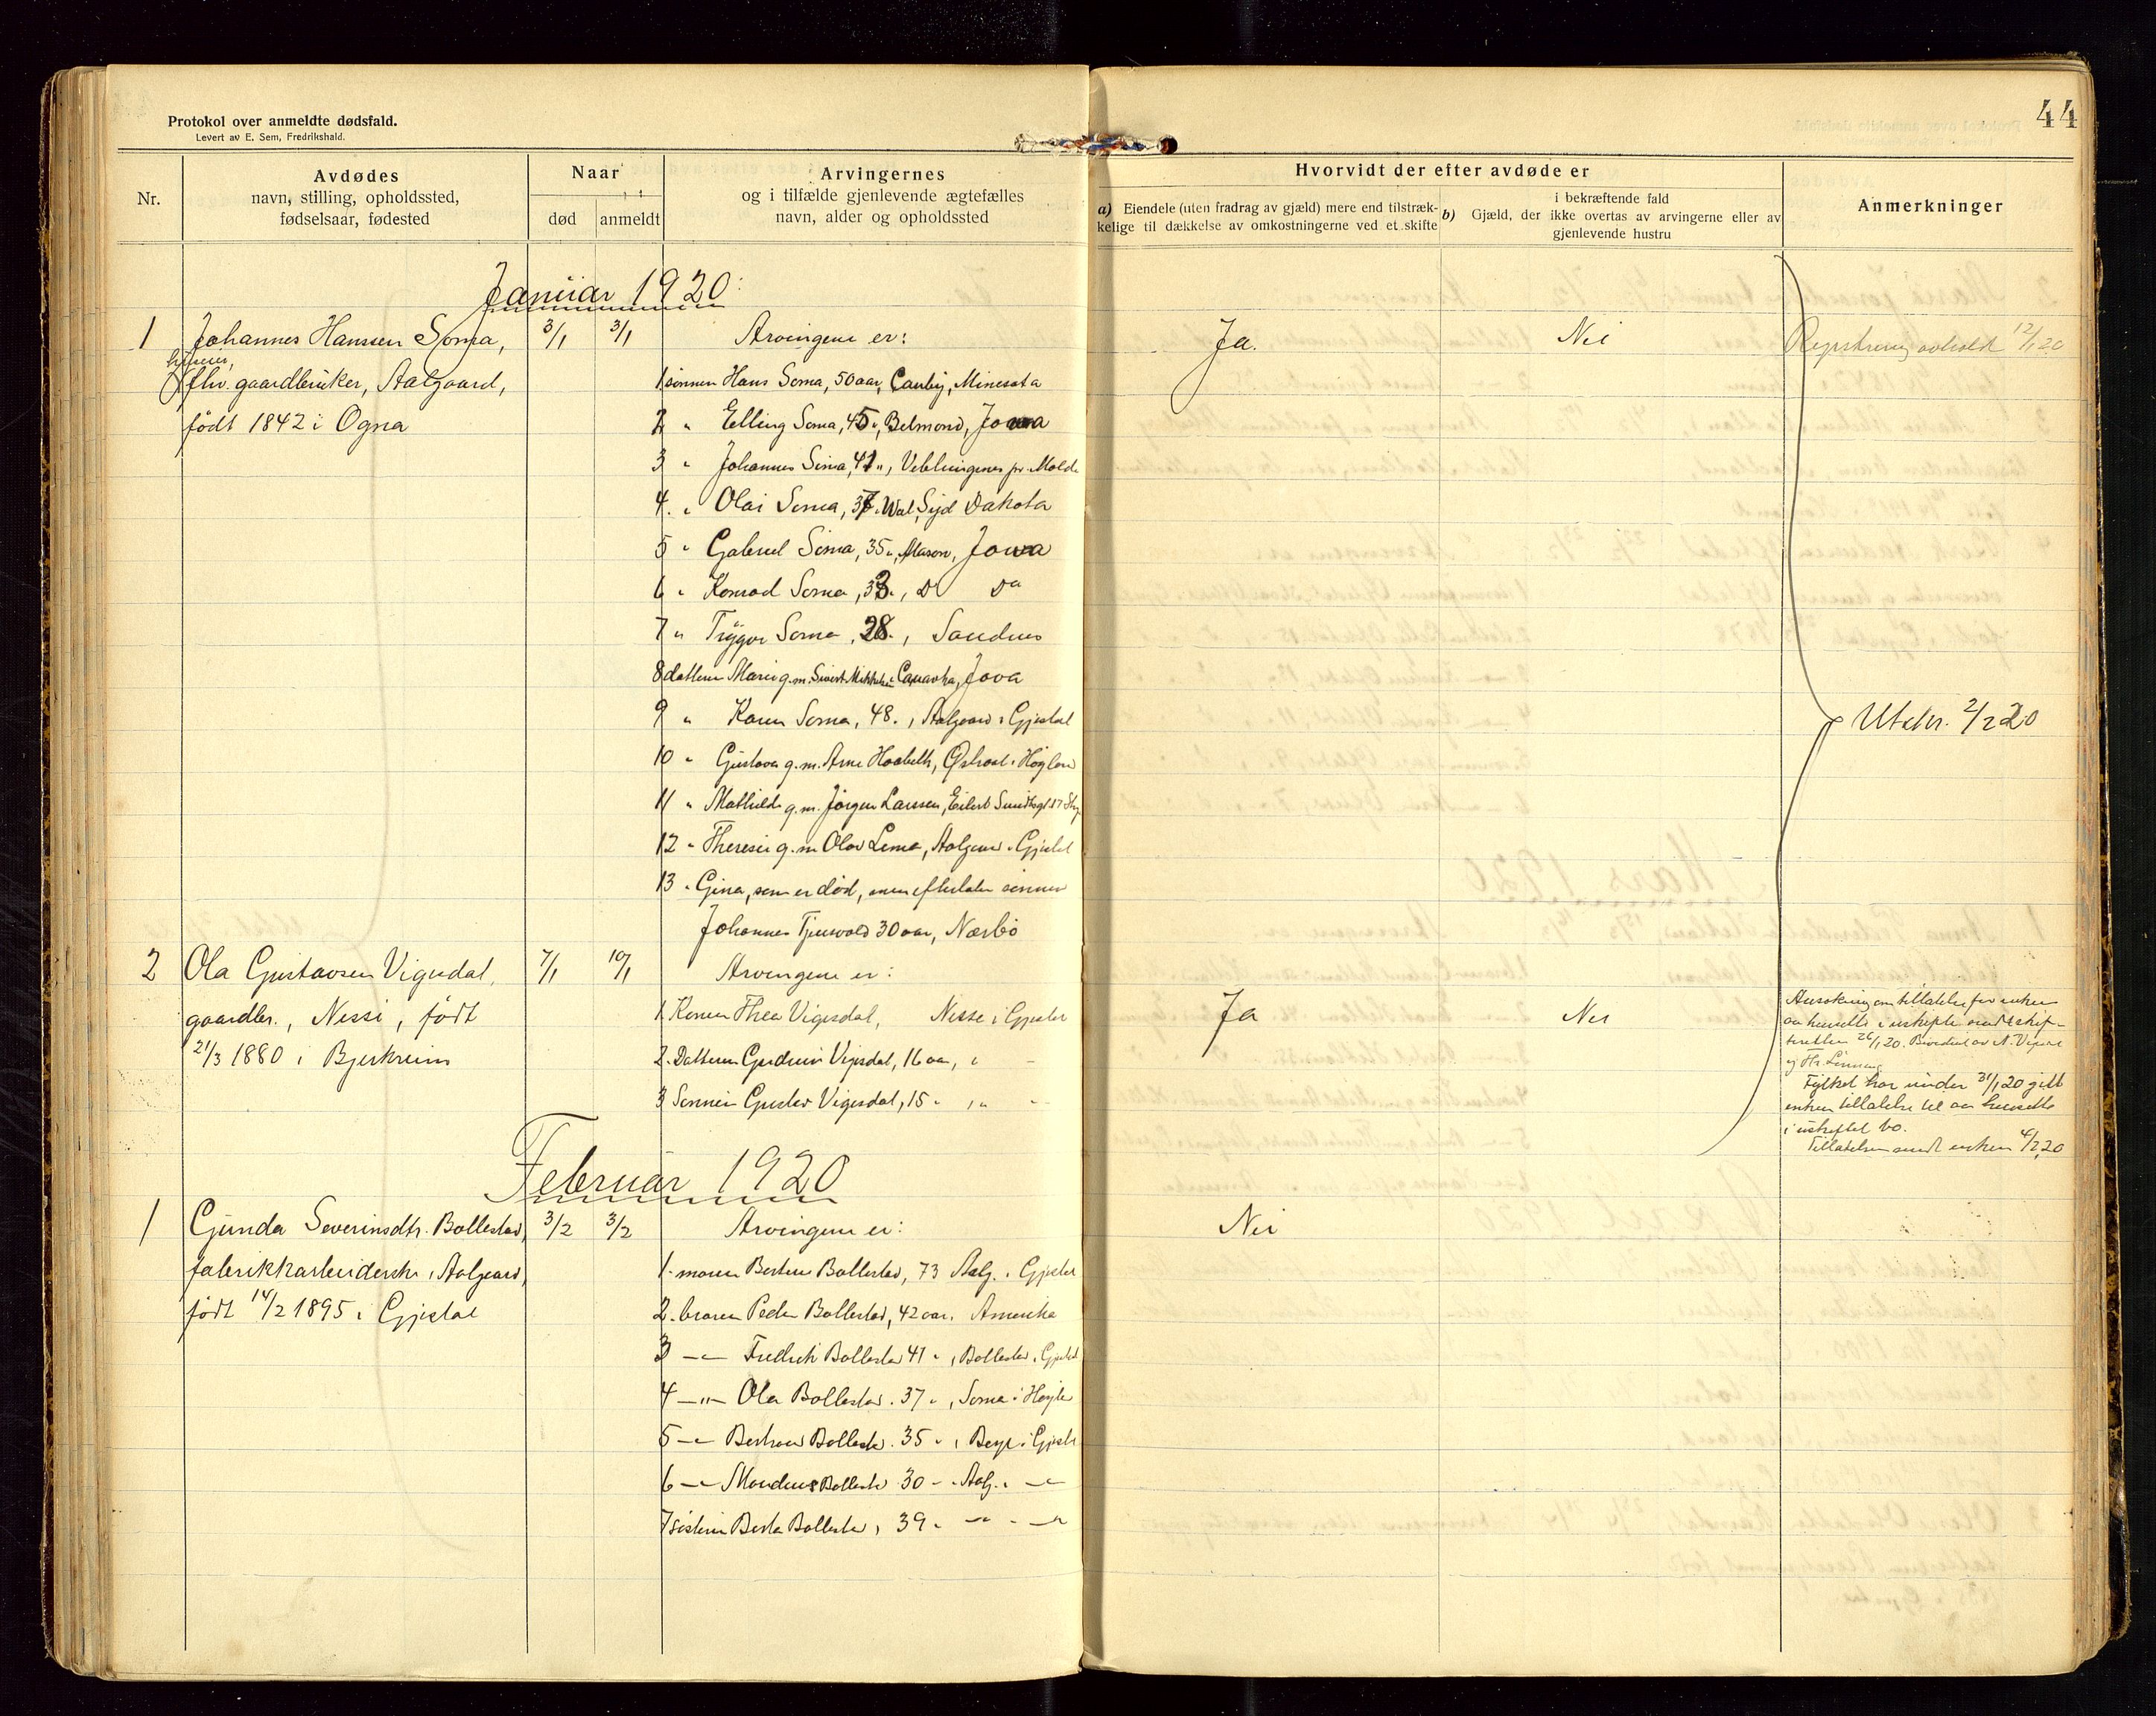 Protokol over anmeldte dødsfald.
Levert av E. Sem, Fredrikshald.
44
Nr.
Avdødes
navn, stilling, opholdssted,
fødselsaar, fødested
Naar
død
anmeldt
Arvingernes
og i tilfælde gjenlevende ægtefælles
navn, alder og opholdssted
Hvorvidt der efter avdøde er
a) Eiendele (uten fradrag av gjæld) mere end tilstræk-
kelige til dækkelse av omkostningerne ved et skifte
i bekræftende fald
b) Gjæld, der ikke overtas av arvingerne eller av
gjenlevende hustru
Anmerkninger
Januar 1920
1 Johannes Hanssen Soma, 3/1 3/1 Arvingene er: Ja. Nei Registrering avholdt 12/1 20
fhv. gaardbruker, Aalgaard,
født 1842 i Ogna
1 sønnen Hans Soma, 50 aar, Canby, Minesota
2 " Elling Soma, 45 ", Belmond, Jowa
3 " Johannes Soma, 41 ", Veblungsnes pr. Molde
4. " Olai Soma, 37 " Syd Dakota
5 " Gabriel Soma, 35 ", Mason, Jowa
6 " Konrad Soma, 33 ", Do Do
7 " Trygve Soma, 28 ", Sandnes
8 datteren Marie g. m. Sivert Jova
9 " Karen Soma, 48 ", Aalgaard i Gjestal
10 " Gustava g. m. Arne i Høgland
11 " Mathilde g. m. Jørgen Larssen, Eilert Sundtsgt 37
12 " Theresie g. m. Olav Lima, Aalgaard i Gjestal
13 " Gina, som er død, men efterlater sønnen
Johannes 30 aar, Nærbø
Utskr. 2/2 20
2 Ola Gustavsen Vigesdal, 7/1 10/1 Arvingene er: Ja Nei
gaardbr., Nesse, født
21/3 1880 i Bjerkreim
1 Konen Thea Vigesdal, Nesse i Gjestal
2. Datteren Gudrun Vigesdal, 16 aar, " "
3 Sønnen Gustav Vigesdal, 15 " , " "
Ansøkning om tillatelse for enken
aa hensitte i uskifte sendt skif-
teretten 26/1 20.
Fylket har under 31/1 20 gitt
enken tillatelse til aa hensitte
i uskiftet bo.
Tillatelsen sendt enken 4/2 20
Februar 1920
1 Gunda Severinsdtr. Bollestad, 3/2 3/2 Arvingene er: Nei
fabrikkarbeiderske, Aalgaard,
født 14/2 1895 i Gjestal
1. moren Bollestad, 73 Aalg. i Gjestal
2. broren Peder Bollestad, 42 aar, Amerika
3 —"— Fredrik Bollestad 41 ", Bollestad i Gjestal
4 —"— Ola Bollestad. 37 ", Soma i Høyla
5 —"— Bollestad. 35 ", i Gjestal
6 —"— Bollestad 30 " " Aalg. " —"—
7 søsteren Berta Bollestad, 39 " —"— " —"—